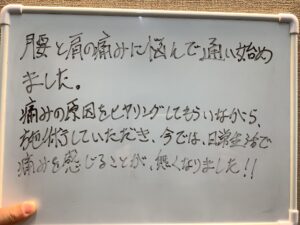 腰と肩の痛みに悩んで通い始め
ました。
痛みの原因をヒヤリングしてもらいながら、
施術していただき、今では、日常生活で
痛みを感じることが、無くなりました!!